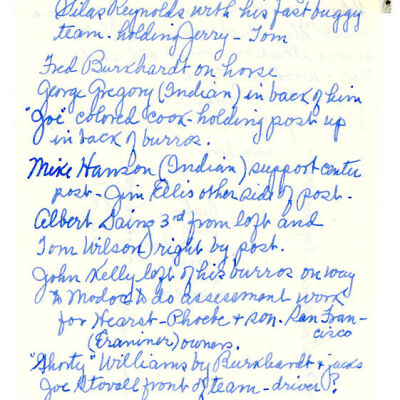 Silas Reynolds with his fast buggy
team. holding Jerry - Tom
Fred Burkhardt on horse
George Gregory (Indian) in back of him
"Joe" colored cook - holding post up
in back of burros.
Mike Hanson (Indian) support center
post - Jim Ellis other side of post.
Albert Sains 3rd from left and
Tom Wilson) right by post.
John Kelly left of his burros on way
to Modoc to do assessment work
for Hearst - Phoebe + son. San Fran-
cisco
(Examiner) owners.
"Shorty" Williams by Burkhardt + jacks
Joe Stovall front of team - driver?